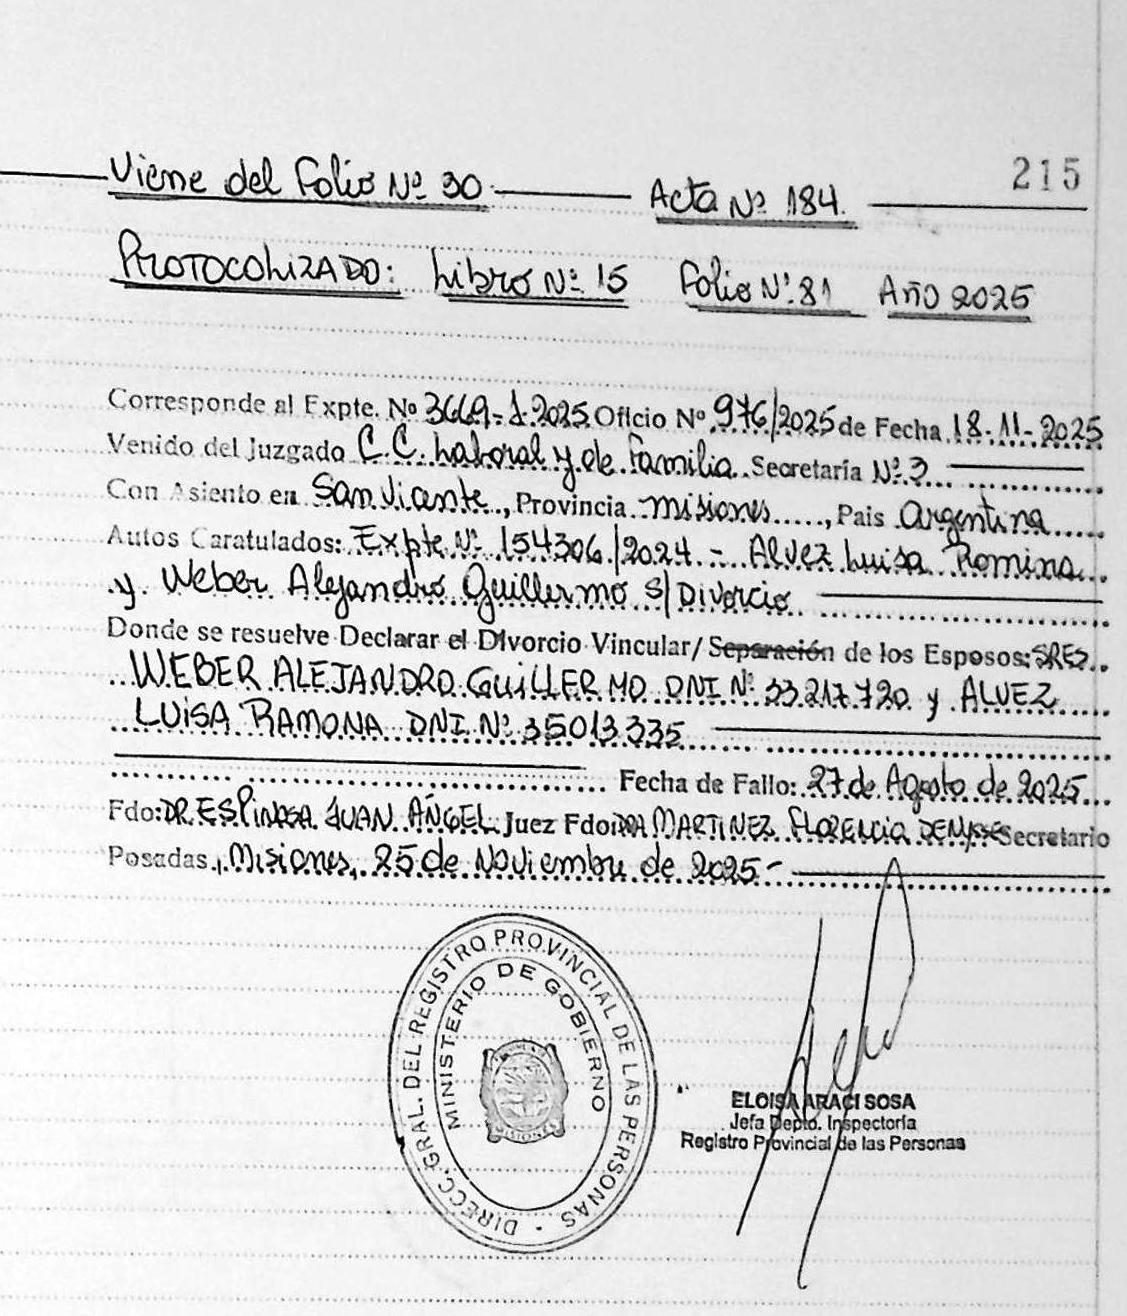 215
Viene del Folio Nº 30 Acta Nº 184.
PROTOCOLIZADO: Libro Nº 15 Folio Nº 81 Año 2025
Corresponde al Expte. Nº 3669-1-2025 Oficio Nº 976/2025 de Fecha 18-11-2025
Venido del Juzgado C.C. Laboral y de Familia Secretaría Nº 3
Con Asiento en San Vicente, Provincia Misiones, Pais Argentina
Autos Caratulados: Expte Nº 154306/2024 - Alvez Luisa Romina
y Weber Alejandro Guillermo S/ Divorcio
Donde se resuelve Declarar el Divorcio Vincular/ Separación de los Esposos: SRES.
WEBER ALEJANDRO GUILLERMO DNI Nº 33.217.720 y ALVEZ
LUISA RAMONA DNI Nº 35013335
Fecha de Fallo: 27 de Agosto de 2025
Fdo: DR. ESPINOSA JUAN ÁNGEL Juez Fdo: DRA MARTINEZ FLORENCIA DENYSSE Secretario
Posadas, Misiones, 25 de Noviembre de 2025-
DIRECC. GRAL. DEL REGISTRO PROVINCIAL DE LAS PERSONAS
MINISTERIO DE GOBIERNO
MISIONES
ELOISA ARACI SOSA
Jefa Depto. Inspectoría
Registro Provincial de las Personas